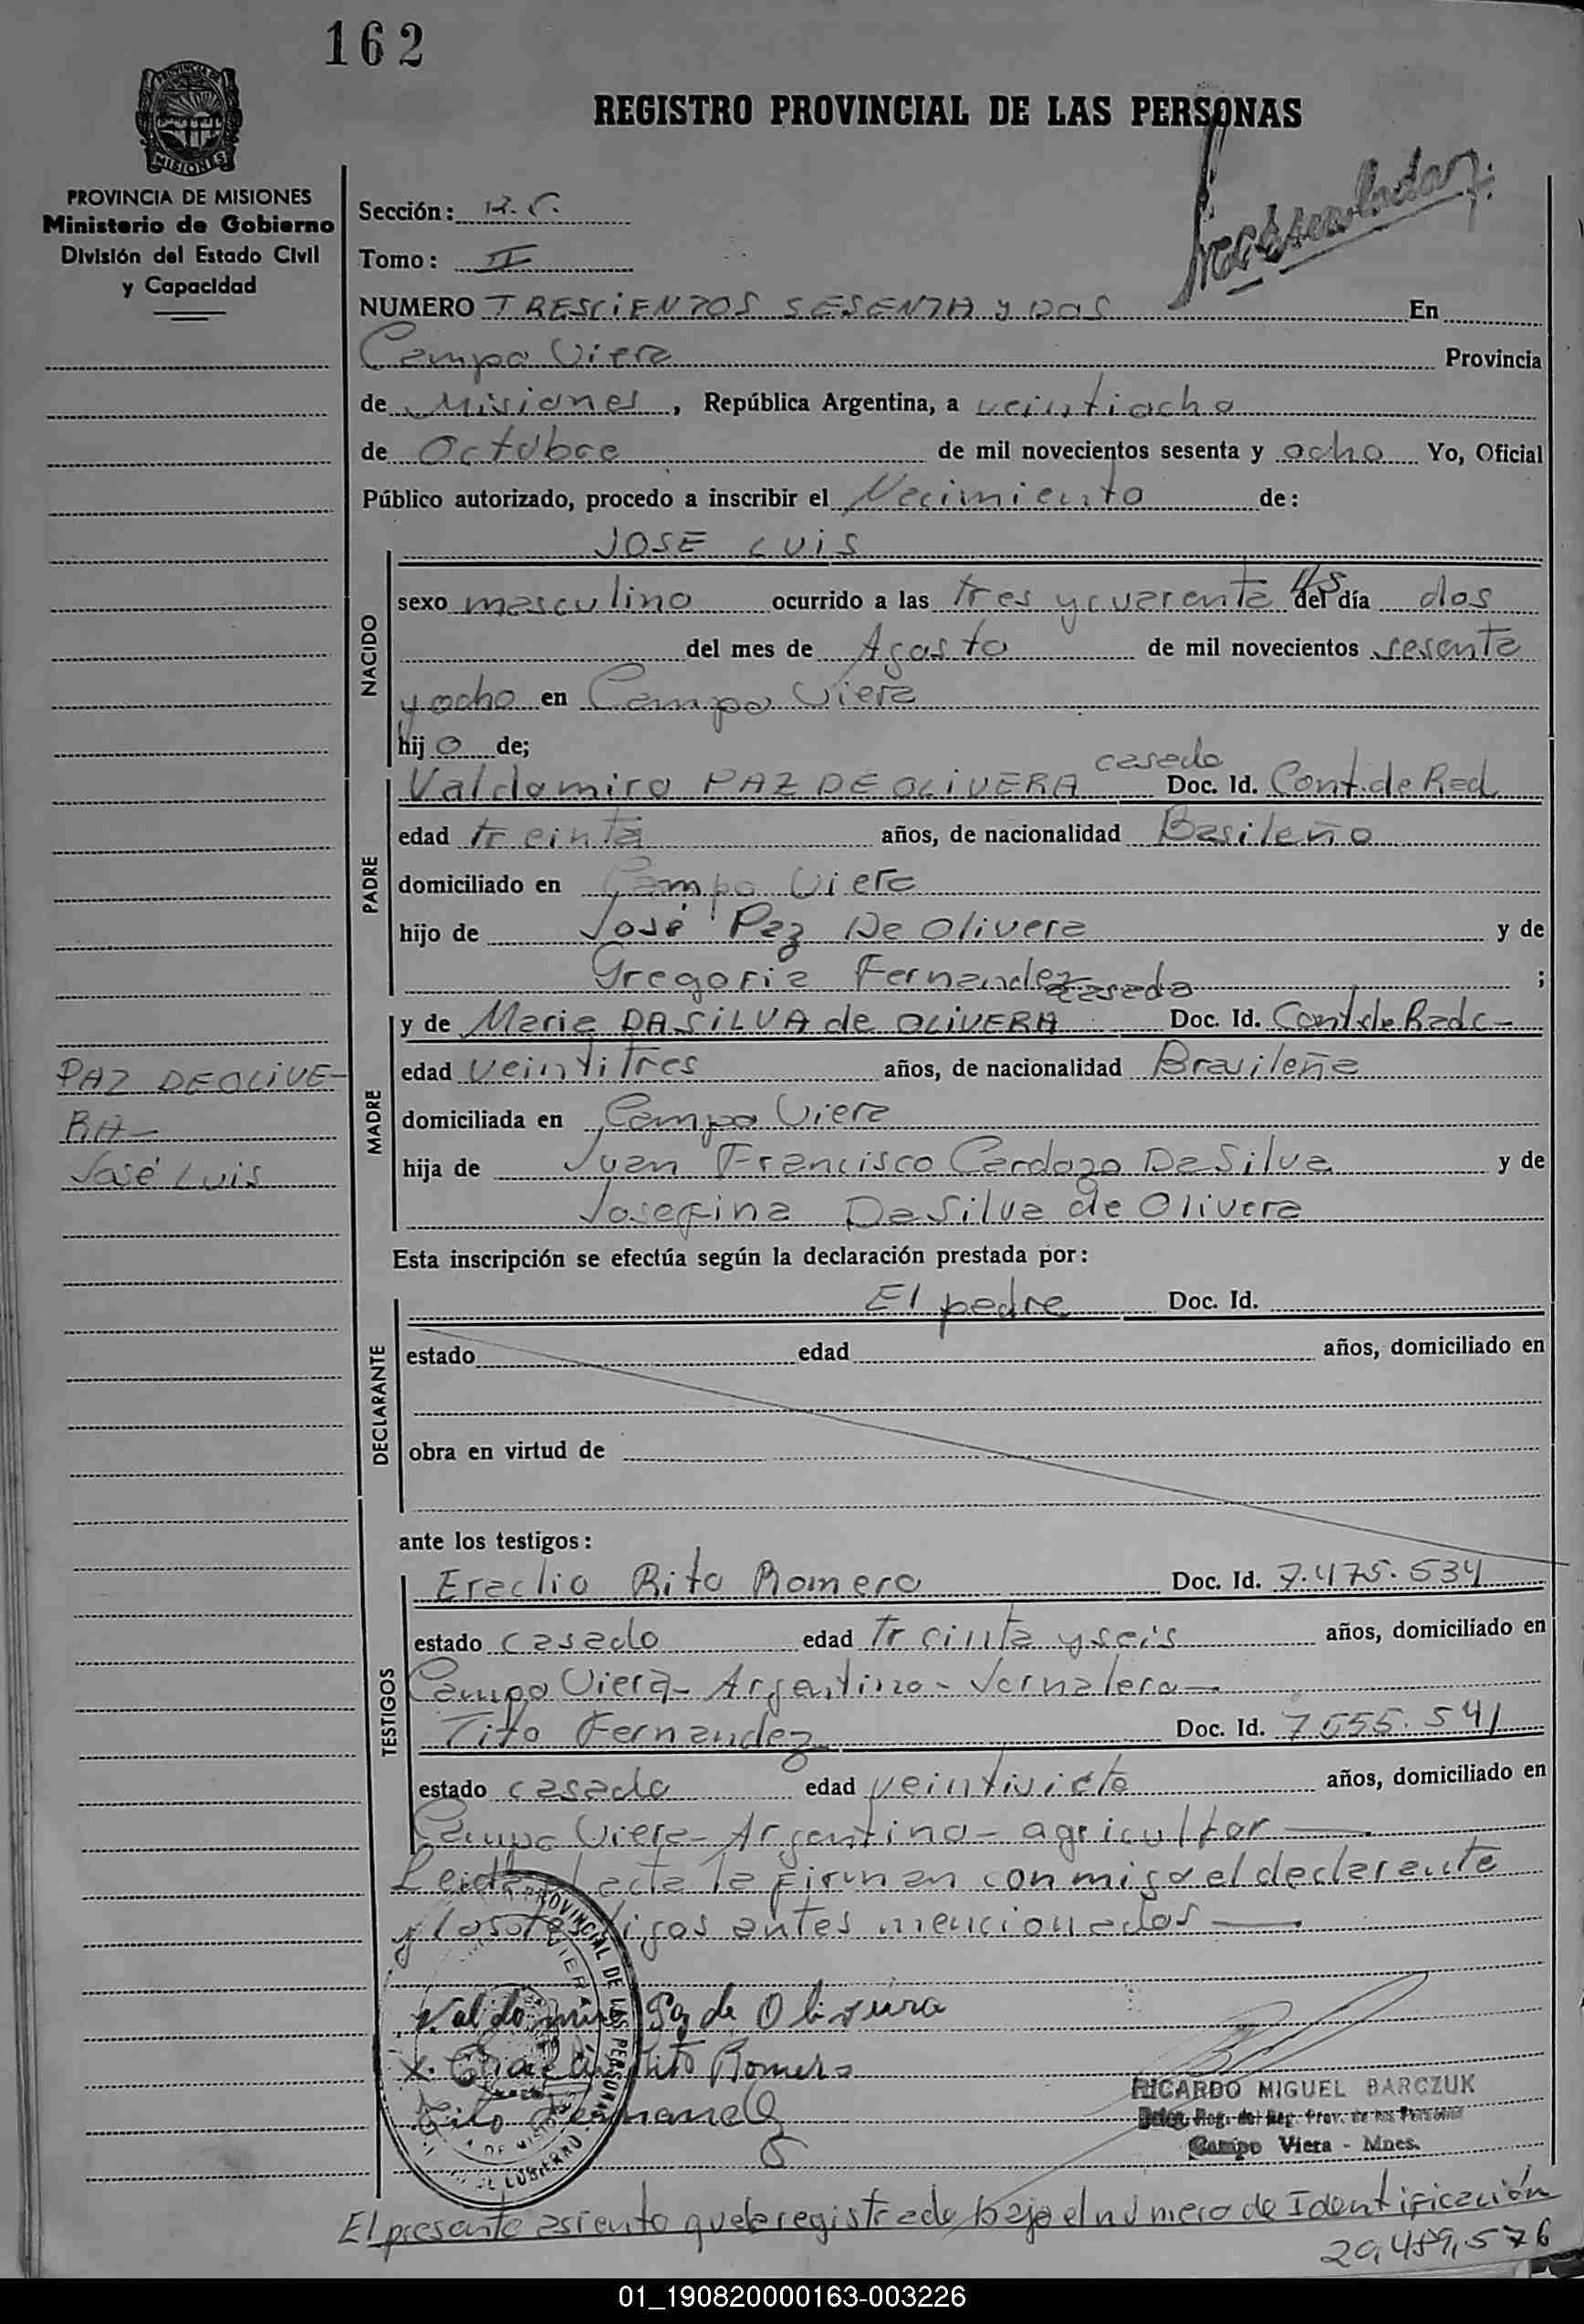 162
REGISTRO PROVINCIAL DE LAS PERSONAS
MISIONES
PROVINCIA DE MISIONES
Ministerio de Gobierno
División del Estado Civil
y Capacidad
Sección:
Tomo: II
NUMERO TRESCIENTOS SESENTA y DOS En
Campo Viera Provincia
de Misiones, República Argentina, a veintiocho
de Octubre de mil novecientos sesenta y ocho Yo, Oficial
Público autorizado, procedo a inscribir el Nacimiento de:
JOSE LUIS
NACIDO
sexo masculino ocurrido a las tres y cuarenta hs del día dos
del mes de Agosto de mil novecientos sesenta
y ocho en Campo Viera
hijo de;
casado
PADRE
Valdomiro PAZ DE OLIVERA Doc. Id. Cont. de Rad.
edad treinta años, de nacionalidad Basileño
domiciliado en Campo Viera
hijo de José Paz De Olivera y de
Gregoria Fernandez ;
casada
MADRE
y de Maria DA SILVA de OLIVERA Doc. Id. Cont. de Radc-
edad veintitres años, de nacionalidad Brasileña
domiciliada en Campo Viera
hija de Juan Francisco Cardozo Da Silva y de
Josefina Da Silva de Olivera
PAZ DE OLIVE-
RA-
José Luis
Esta inscripción se efectúa según la declaración prestada por:
DECLARANTE
El padre Doc. Id.
estado edad años, domiciliado en
obra en virtud de
ante los testigos:
TESTIGOS
Eraclio Rito Romero Doc. Id. 7.475.534
estado casado edad treinta y seis años, domiciliado en
Campo Viera- Argentino- Jornalero-
Tito Fernandez Doc. Id. 7.555.541
estado casado edad veintisiete años, domiciliado en
Campo Viera- Argentino- agricultor
Leida acta la firman con migo el declarante
y los testigos antes mencionados
PROVINCIAL DE LAS PERSONAS
Valdomiro Paz de Oliveira
Rito Romero
Tito Fernandez
RICARDO MIGUEL BARCZUK
Deleg. Reg. del Reg. Prov. de las Personas
Campo Viera - Mnes.
El presente asiento queda registrado bajo el número de Identificación
20,489,576
01_190820000163-003226